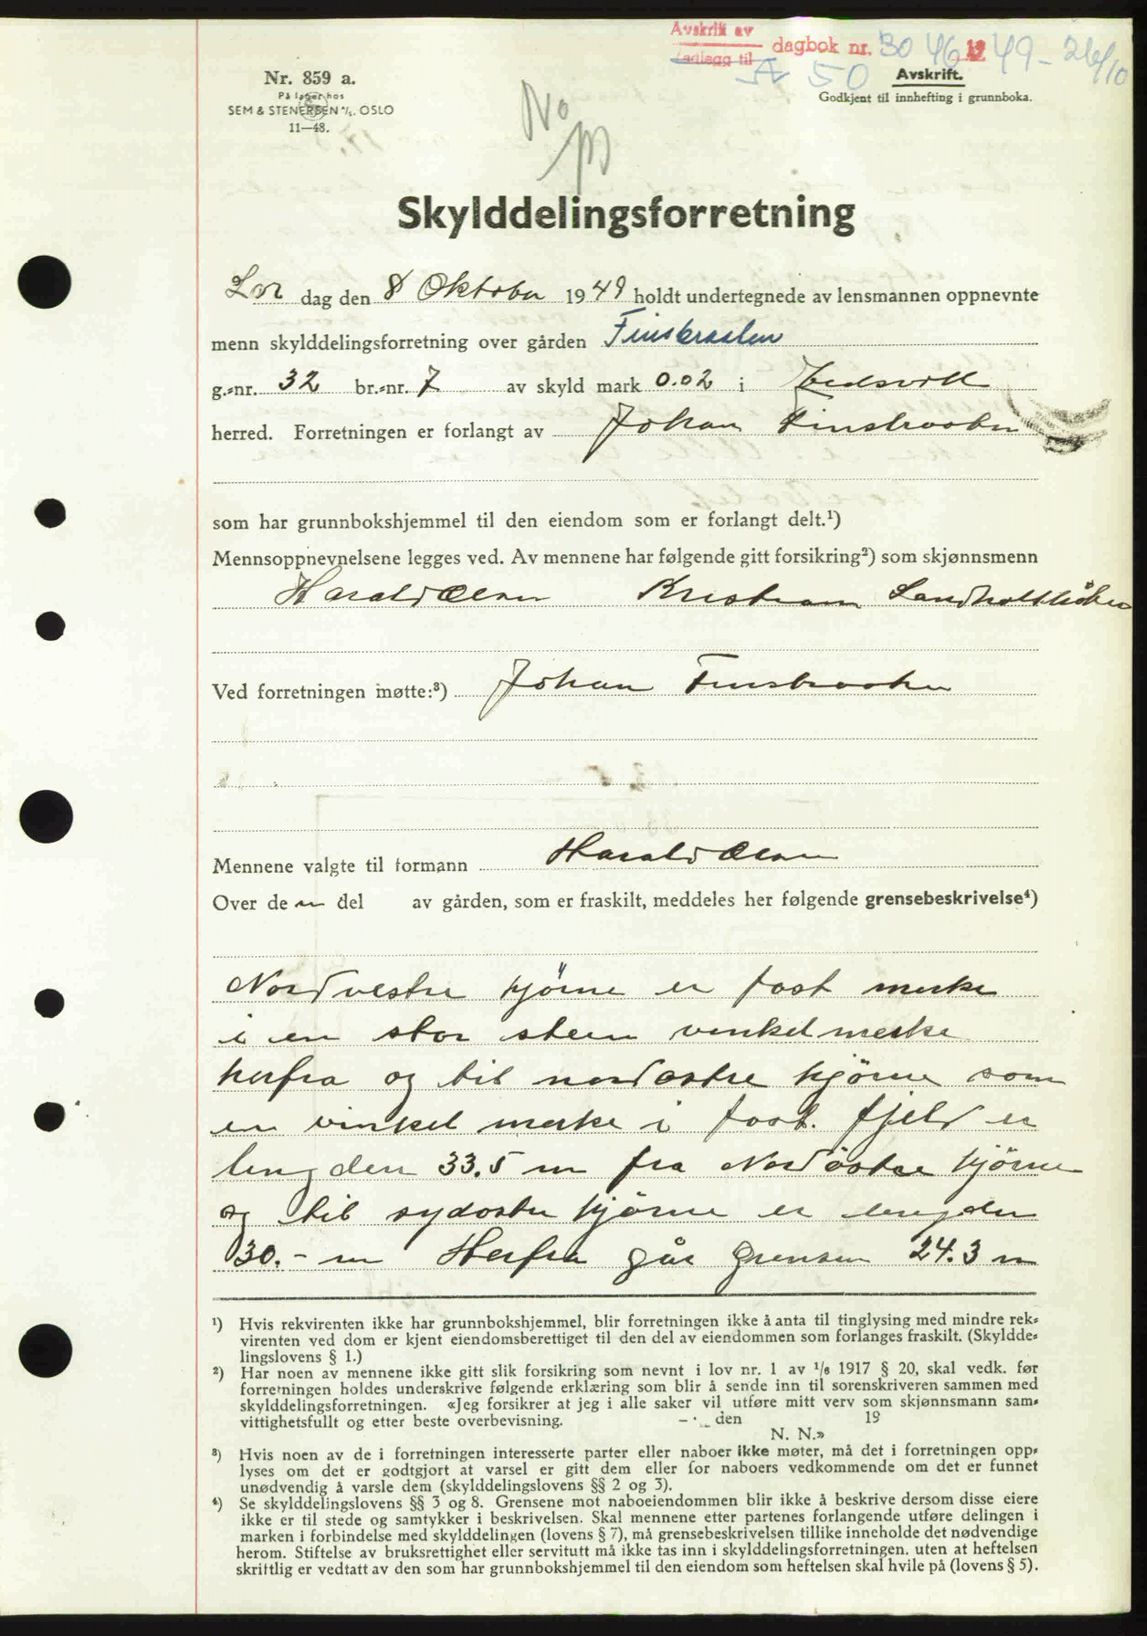 Avskrift av
dagbok nr. 3046 1949 - 26/10
Vedlegg til
A 50
Avskrift.
Godkjent til innhefting i grunnboka.
Nr. 859 a.
På lager hos
SEM & STENERSEN A/S. OSLO
11—48.
No
Skylddelingsforretning
Lør dag den 8 Oktober 1949 holdt undertegnede av lensmannen oppnevnte
menn skylddelingsforretning over gården Finsbraaten
g.-nr. 32 br.-nr. 7 av skyld mark 0.02 i Eidsvoll
herred. Forretningen er forlangt av Johan Finsbraaten
som har grunnbokshjemmel til den eiendom som er forlangt delt.¹)
Mennsoppnevnelsene legges ved. Av mennene har følgende gitt forsikring²) som skjønnsmenn
Harald Olsen Kristian
Ved forretningen møtte:³) Johan Finsbraaten
Mennene valgte til formann Harald Olsen
Over de n del av gården, som er fraskilt, meddeles her følgende grensebeskrivelse⁴)
Nordvestre hjörne er fast merke
i en stor sten vinkelmerke
herfra og til nordostre hjörne som
en vinkel merke i fast. fjeld er
lengden 33.5 m fra Nordöstre hjörne
og til sydostre hjörne er lengden
30.- m Herfra går Grensen 24.3 m
¹) Hvis rekvirenten ikke har grunnbokshjemmel, blir forretningen ikke å anta til tinglysing med mindre rek-
virenten ved dom er kjent eiendomsberettiget til den del av eiendommen som forlanges fraskilt. (Skyldde-
lingslovens § 1.)
²) Har noen av mennene ikke gitt slik forsikring som nevnt i lov nr. 1 av 1/6 1917 § 20, skal vedk. før
forretningen holdes underskrive følgende erklæring som blir å sende inn til sorenskriveren sammen med
skylddelingsforretningen. «Jeg forsikrer at jeg i alle saker vil utføre mitt verv som skjønnsmann sam-
vittighetsfullt og etter beste overbevisning. — den 19
N. N.»
³) Hvis noen av de i forretningen interesserte parter eller naboer ikke møter, må det i forretningen opp-
lyses om det er godtgjort at varsel er gitt dem eller for naboers vedkommende om det er funnet
unødvendig å varsle dem (skylddelingslovens §§ 2 og 3).
⁴) Se skylddelingslovens §§ 3 og 8. Grensene mot naboeiendommen blir ikke å beskrive dersom disse eiere
ikke er til stede og samtykker i beskrivelsen. Skal mennene etter partenes forlangende utføre delingen i
marken i forbindelse med skylddelingen (lovens § 7), må grensebeskrivelsen tillike inneholde det nødvendige
herom. Stiftelse av bruksrettighet eller servitutt må ikke tas inn i skylddelingsforretningen, uten at heftelsen
skriftlig er vedtatt av den som har grunnbokshjemmel til den eiendom som heftelsen skal hvile på (lovens § 5).